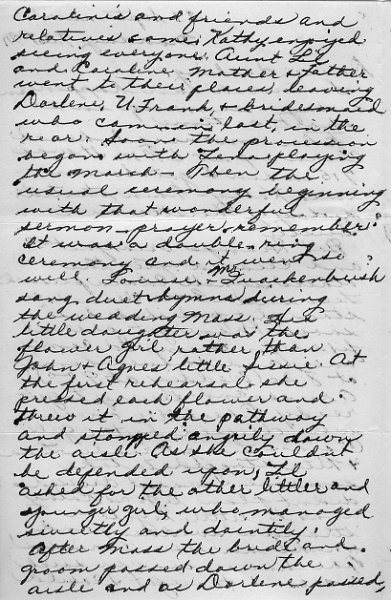 Caroline's and friends and
relatives came. Kathy enjoyed
seeing everyone. Aunt Lil
and Caroline, Mother & Father
went to their places, leaving
Darlene, U. Frank & bridesmaid
who came in last, in the
rear. Soon the procession
began with Lena playing
the march - Then the
usual ceremony beginning
with that wonderful
sermon - prayer, remember?
It was a double-ring
ceremony and it went so
well. Louise, Mrs Quackenbush
sang duet hymns during
the wedding Mass.
little daughter was the
flower girl rather than
John & Agnes' little Susie. At
the first rehearsal she
pressed each flower and
threw it in the pathway
and stomped angrily down
the aisle. As she couldn't
be defended upon, Lil
asked for the other littler and
younger girl, who managed
sweetly and daintily.
After Mass the bride and
groom passed down the
aisle and as Darlene passed,